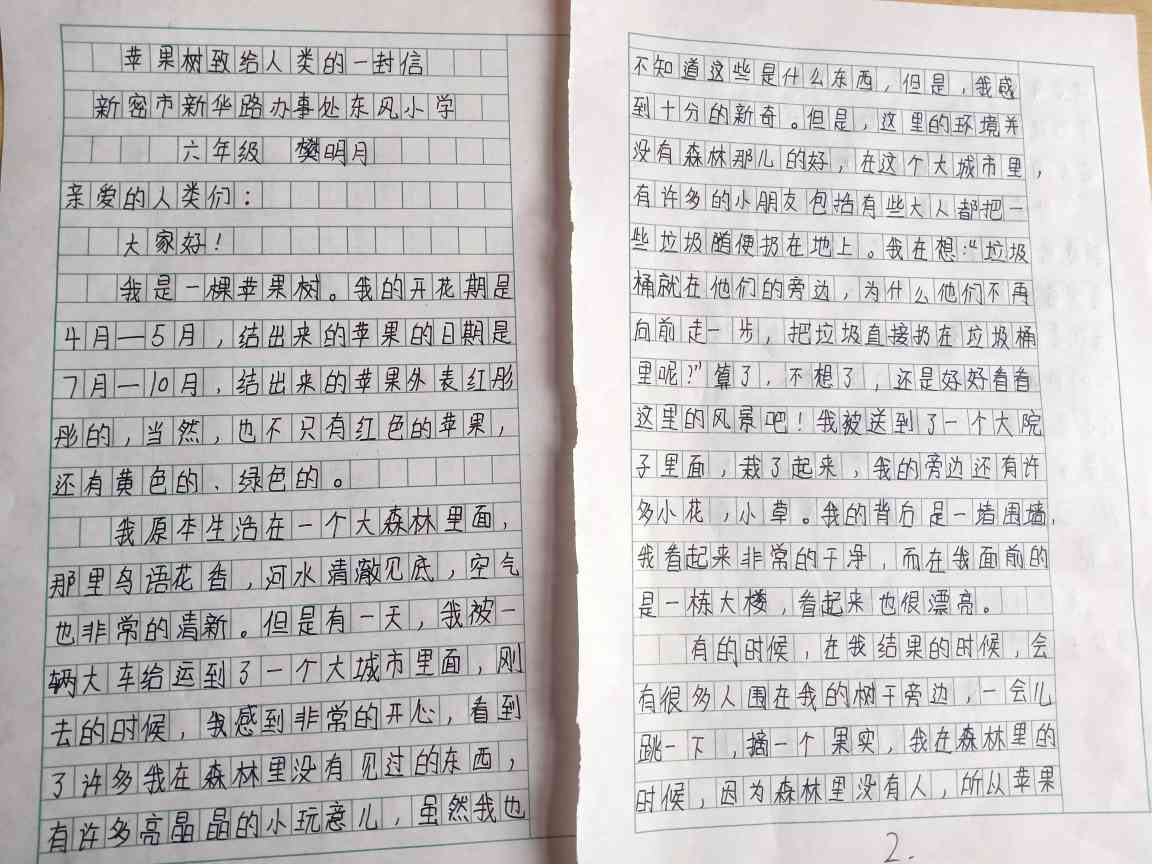 苹果树致给人类的一封信
新密市新华路办事处东风小学
六年级 樊明月
亲爱的人类们：
大家好！
我是一棵苹果树。我的开花期是
4月—5月，结出来的苹果的日期是
7月—10月，结出来的苹果外表红彤
彤的，当然，也不只有红色的苹果，
还有黄色的、绿色的。
我原本生活在一个大森林里面，
那里鸟语花香，河水清澈见底，空气
也非常的清新。但是有一天，我被一
辆大车给运到了一个大城市里面，刚
去的时候，我感到非常的开心，看到
了许多我在森林里没有见过的东西，
有许多亮晶晶的小玩意儿，虽然我也
不知道这些是什么东西，但是，我感
到十分的新奇。但是，这里的环境并
没有森林那儿的好，在这个大城市里，
有许多的小朋友包括有些大人都把一
些垃圾随便扔在地上。我在想：“垃圾
桶就在他们的旁边，为什么他们不再
向前走一步，把垃圾直接扔在垃圾桶
里呢？”算了，不想了，还是好好看看
这里的风景吧！我被送到了一个大院
子里面，栽了起来，我的旁边还有许
多小花，小草。我的背后是一堵围墙，
我看起来非常的干净，而在我面前的
是一栋大楼，看起来也很漂亮。
有的时候，在我结果的时候，会
有很多人围在我的树干旁边，一会儿
跳一下，摘一个果实，我在森林里的
时候，因为森林里没有人，所以苹果
2.